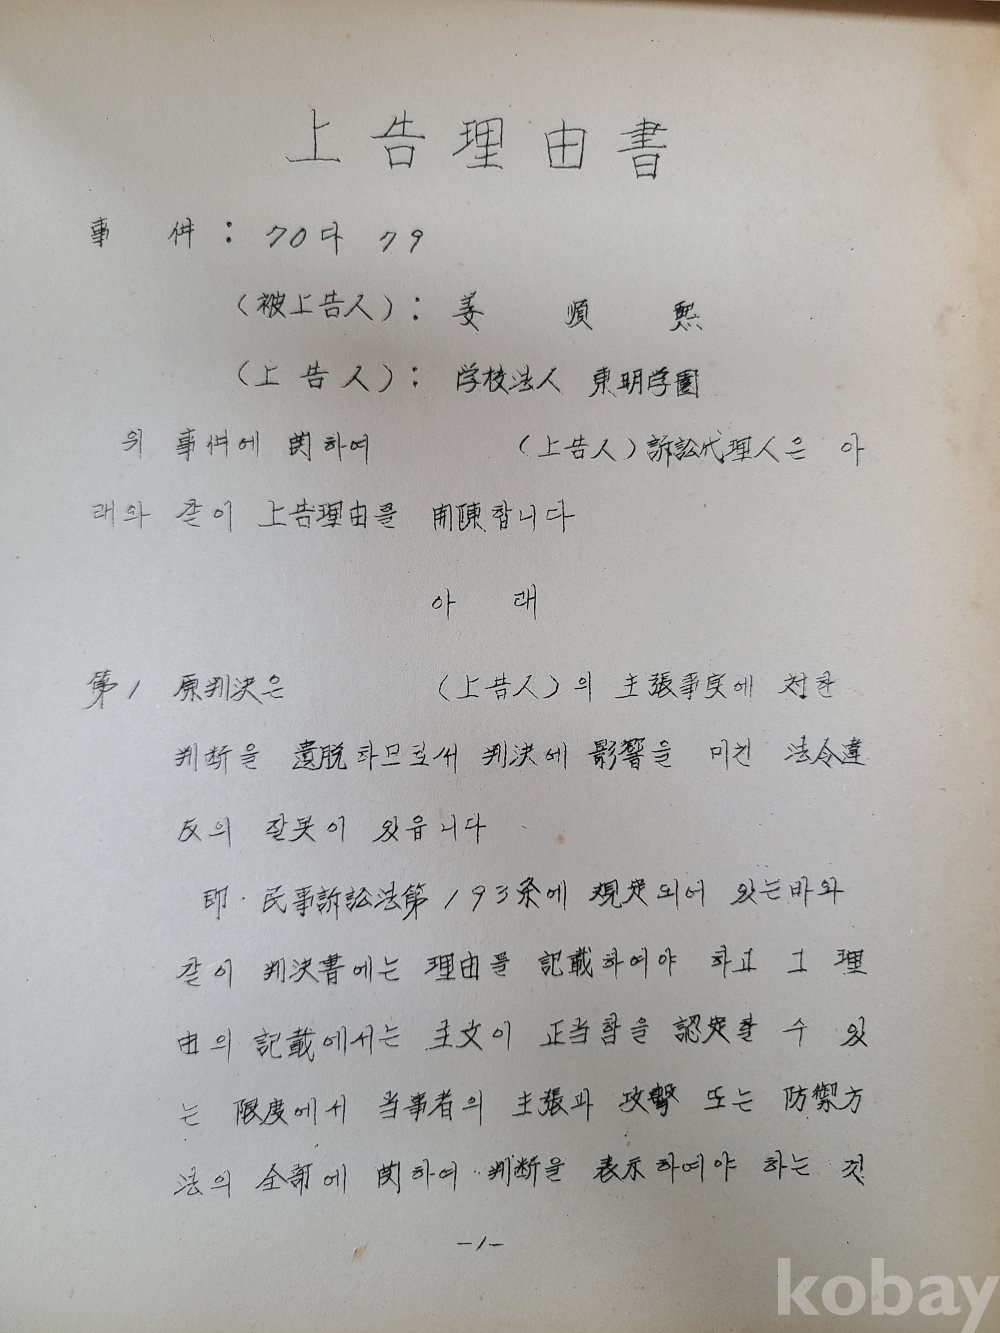 上告理由書
事 件 : 70다 79
(被上告人) : 姜 順 熙
(上告人) : 学校法人 東明学園
위 事件에 関하여 (上告人) 訴訟代理人은 아
래와 같이 上告理由를 開陳합니다
아 래
第1 原判決은 (上告人)의 主張事実에 対한
判断을 遺脱하므로써 判決에 影響을 미친 法令違
反의 잘못이 있읍니다
即. 民事訴訟法第193条에 規定되어 있는바와
같이 判決書에는 理由를 記載하여야 하고 그 理
由의 記載에서는 主文이 正当함을 認定할 수 있
는 限度에서 当事者의 主張과 攻撃 또는 防禦方
法의 全部에 関하여 判断을 表示하여야 하는 것
-1-
kobay